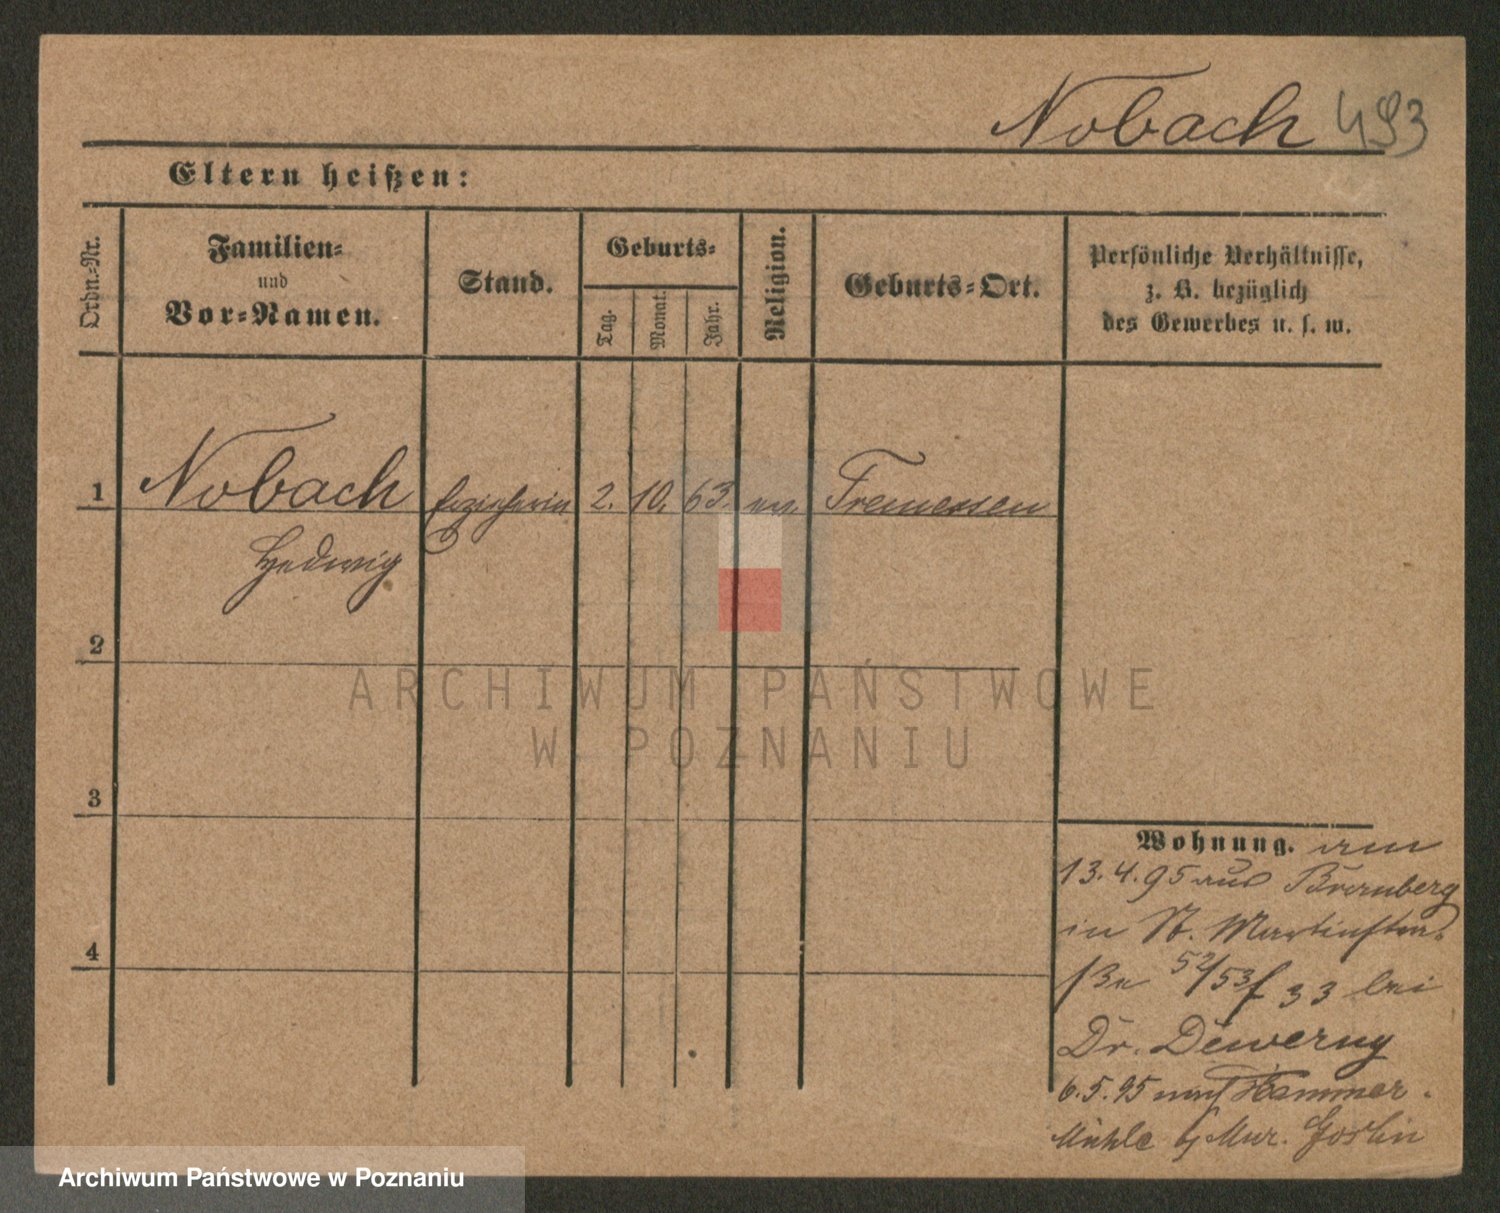 Nobach 493
Eltern heißen:
Ordn.=Nr.
Familien=
und
Vor=Namen.
Stand.
Geburts=
Tag.
Monat.
Jahr.
Religion.
Geburts=Ort.
Persönliche Verhältnisse,
z. B. bezüglich
des Gewerbes u. s. w.
1 Nobach Erzieherin 2. 10. 63. ev. Tremessen
Hedwig
2
ARCHIWUM PAŃSTWOWE
W POZNANIU
3
Wohnung. am
13.4.95 aus Bromberg
in St. Martinstra-
ße 52/53 33 bei
Dr. Dewerny
6.5.95 nach Hammer-
Mühle b/ Mur. Goslin
4
Archiwum Państwowe w Poznaniu